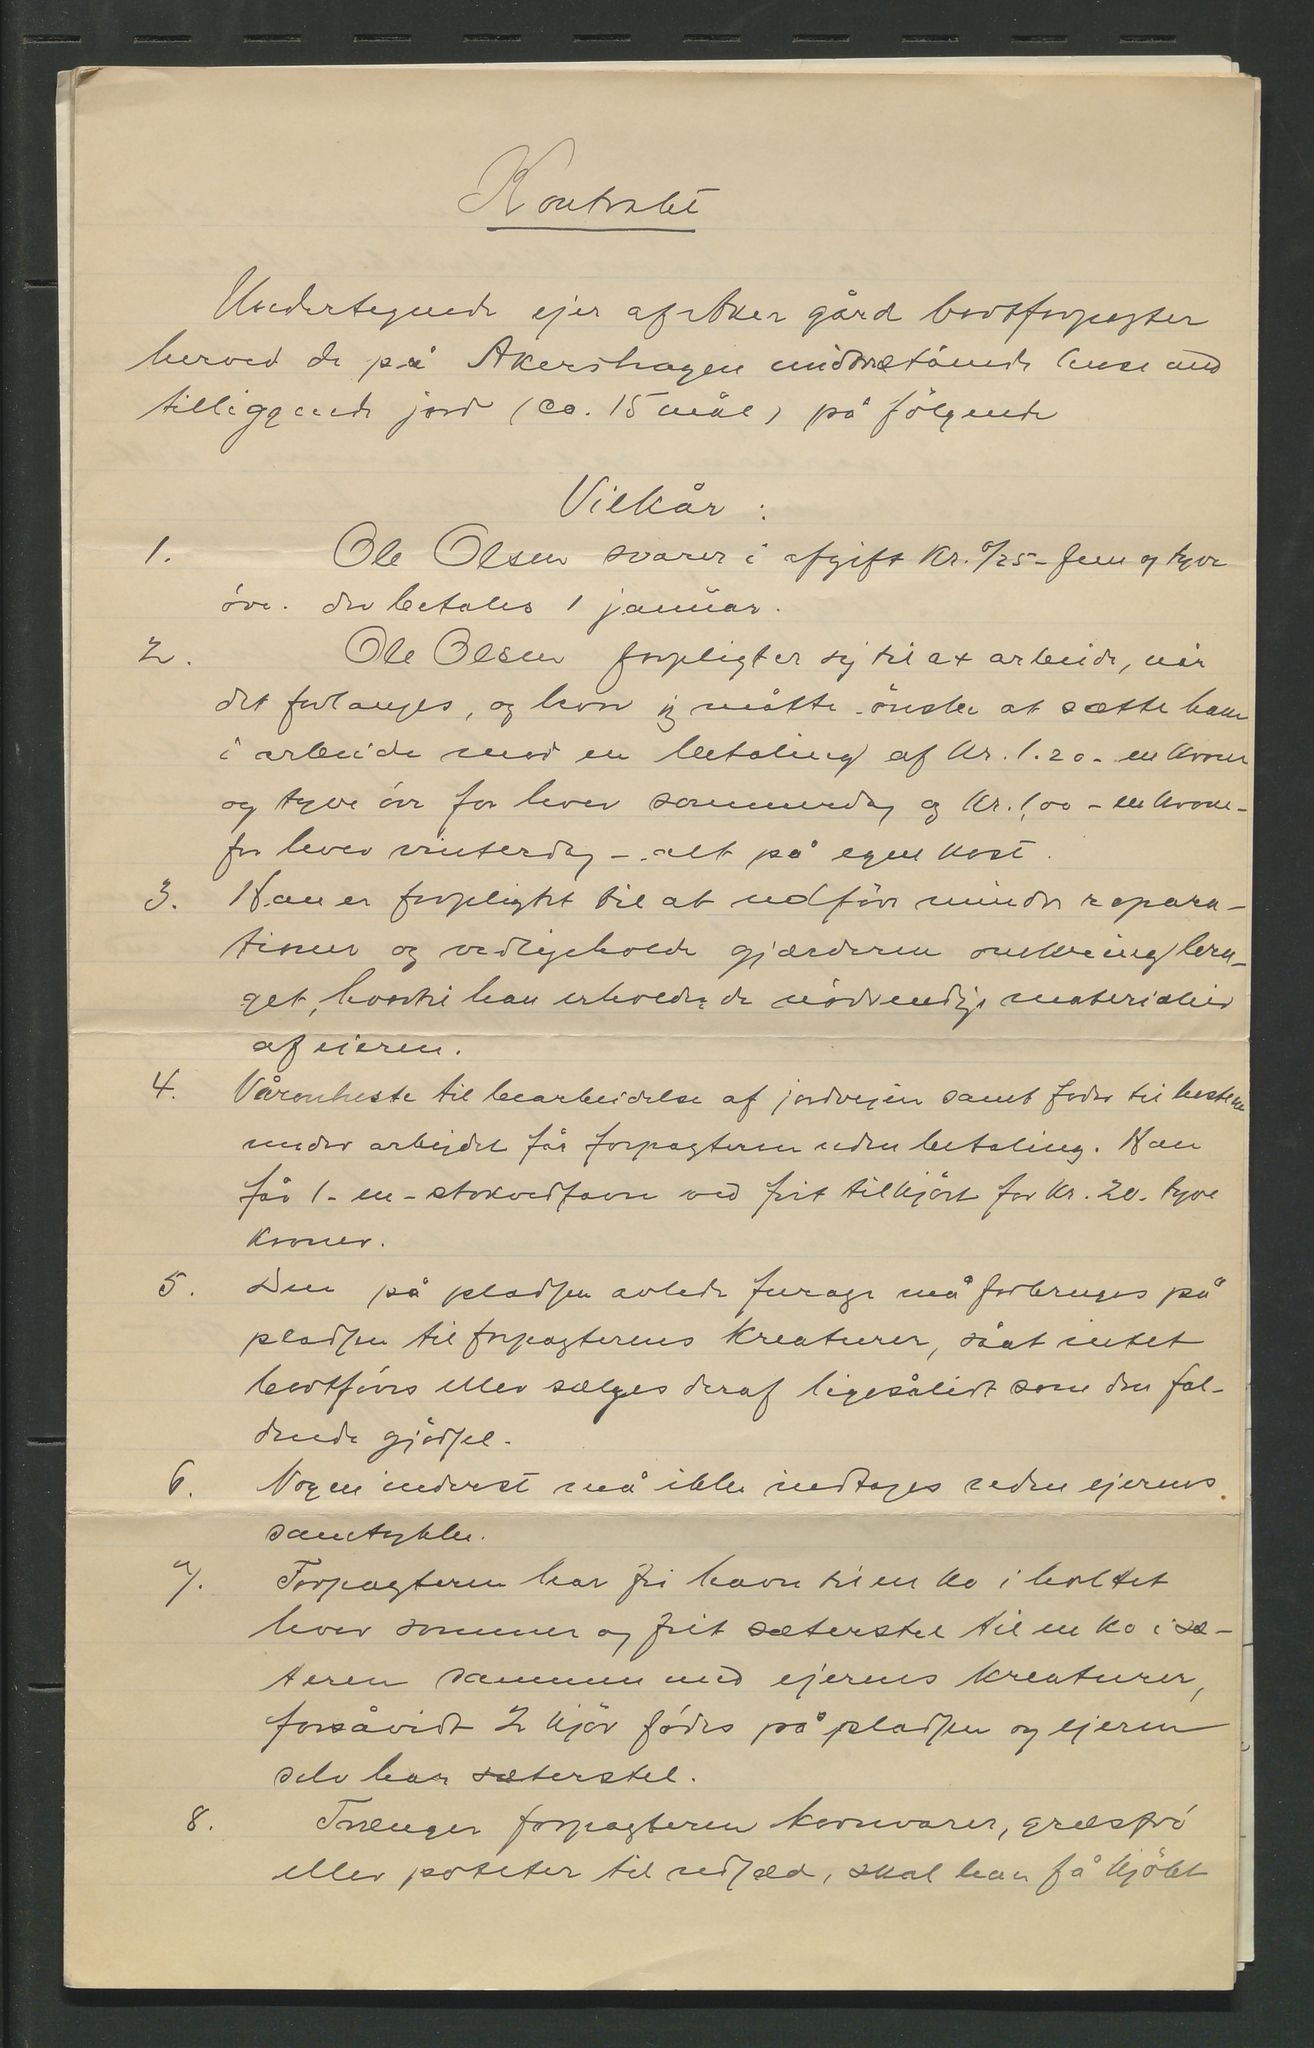 Kontrakt
Undertegnede ejer af Aker gård bortforpagter
herved de på Akershagen stående huse med
tilliggende jord (ca. 15 mål) på følgende
Vilkår:
1. Ole Olsen svarer i afgift Kr. 0/25 - fem og tyve
øre. der betales 1 januar.
2. Ole Olsen forpligter sig til at arbeide, når
det forlanges, og hvor jeg måtte ønske at sætte ham
i arbeide mod en betaling af Kr. 1.20 - en krone
og tyve øre for hver sommerdag og Kr. 1,00 - en krone -
for hver vinterdag - alt på egen kost.
3. Han er forpligtet til at udføre mindre repara-
tioner og vedligeholde gjærderne omkring bru-
get, hvortil han erholder de nødvendige materialier
af eieren.
4. Våronheste til bearbeidelse af jordveien samt foder til hestene
under arbejdet får forpagteren uden betaling. Han
får 1 - en - stokvedfavn ved frit tilkjørt for Kr. 20 - tyve
kroner.
5. Den på pladsen avlede furage må forbruges på
pladsen til forpagterens kreaturer, såat intet
bortføres eller sælges deraf ligesålidt som den fal-
dende gjødsel.
6. Nogen inderst må ikke indtages uden ejerens
samtykke.
7. Forpagteren har fri havn til en ko i holtet
hver sommer og frit sæterstel til en ko i sæ-
teren sammen med ejerens kreaturer,
forsåvidt 2 kjør fødes på pladsen og ejeren
selv har sæterstel.
8. Trænger forpagteren kornvarer, græsfrø
eller poteter til udsæd, skal han få kjøbt